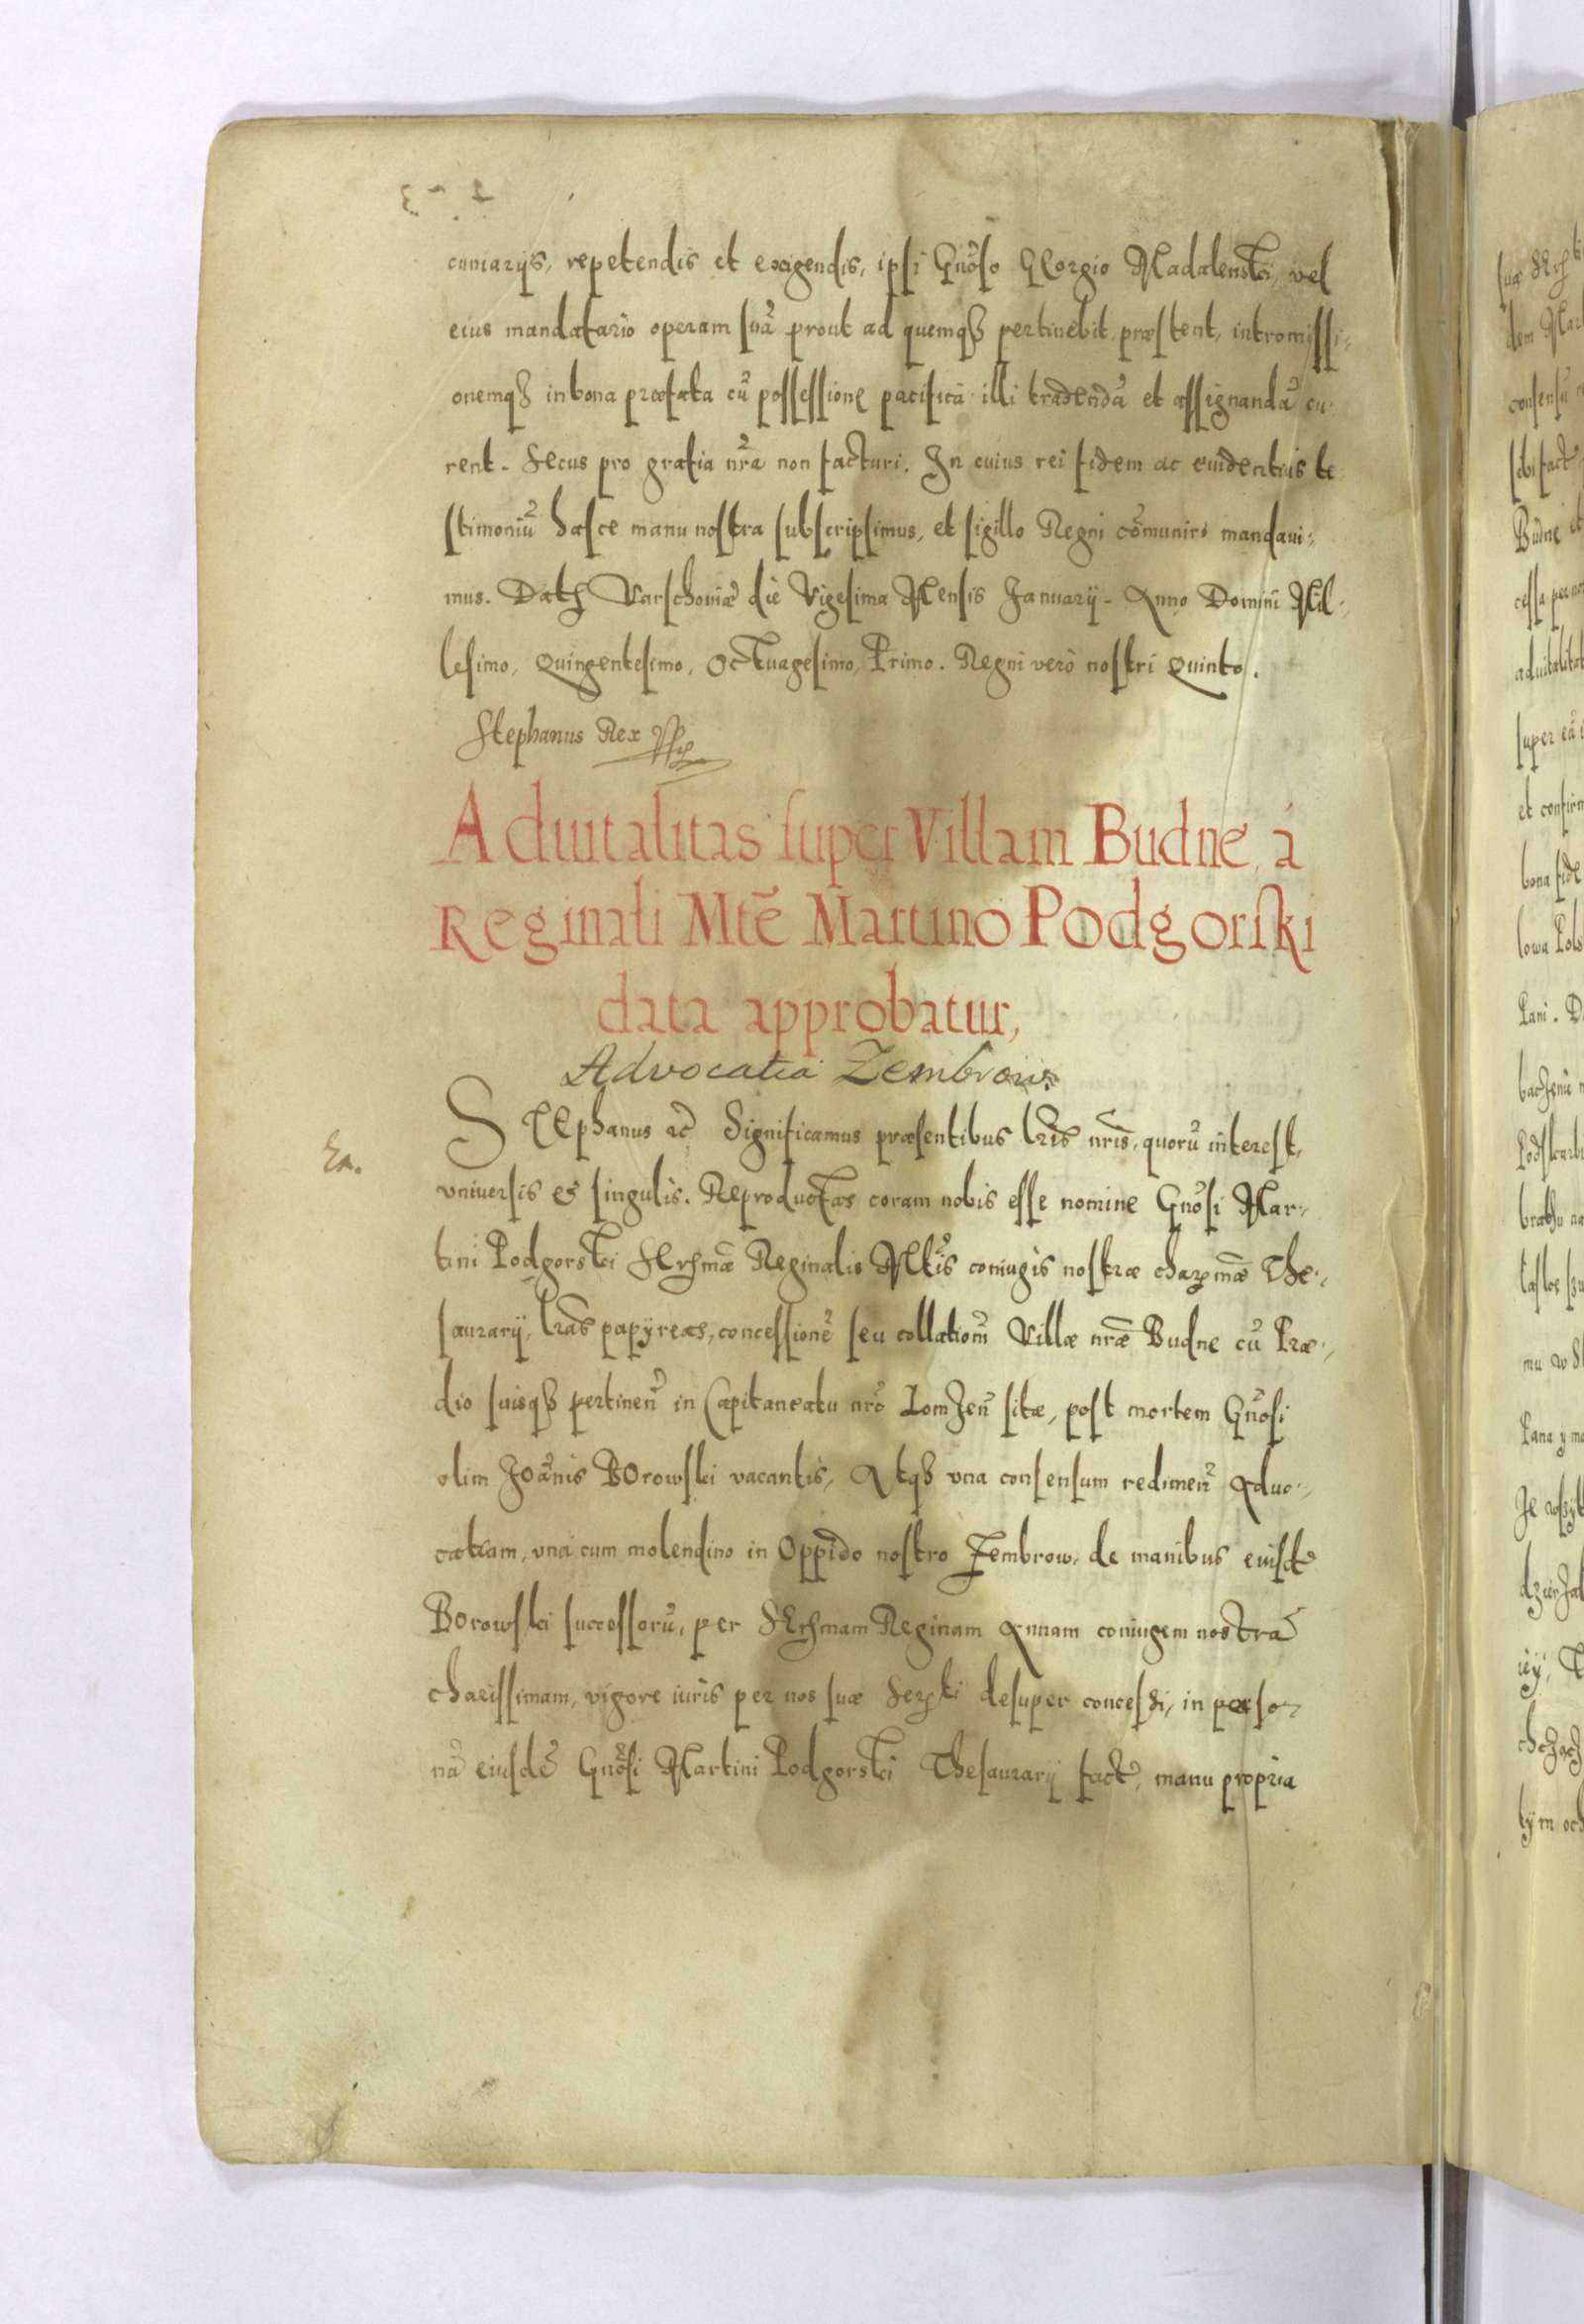 cuniarijs, repetendis et exigendis, ipsi Gnõso GEorgio Madalenski, vel
eius mandatario operam suã prout ad quemqȝ pertinebit, præstent, intromissi⸗
onemqȝ in bona præfata cũ possessione pacifica illi tradendã et assignandã cu⸗
rent. Secus pro gratia nr̃a non facturi. In cuius rei fidem ac euidentius te
stimoniũ hasce manu nostra subscripsimus, et sigillo Regni cõmuniri mandaui⸗
mus. Datȝ Varschouiæ die Vigesima Mensis Januarij. Anno Domini Mil⸗
lesimo, Quingentesimo, Octuagesimo, Primo. Regni vero nostri Quinto.
Stephanus Rex
Aduitalitas super Villam Budne, á
Reginali Mtẽ Martino Podgorski
data approbatur,
Advocatia Zembrow
STEphanus ac̃ Significamus præsentibus lr̃is nr̃is, quorũ interest,
vniuersis et singulis. Reproductas coram nobis esse nomine Gnõsi Mar⸗
tini Podgorski SErȝmæ Reginalis Mtis coniugis nostræ charȝmæ The⸗
saurarij, lr̃as papyreas, concessionẽ seu collationẽ Villæ nr̃æ Budne cũ Præ⸗
dio suisqȝ pertineñ in Capitaneatu nr̃o Lomzeñ sitæ, post mortem Gnõsi
olim Joãnis BOrowski vacantis, Atqȝ vna consensum redimeñ Aduo⸗
catiam, vna cum molendino in Oppido nostro Zembrow, de manibus eiusdẽ
BOrowski successorũ, per SErȝmam Reginam Annam coniugem nostrã
charissimam, vigore iuris per nos suæ Serȝti desuper concessi, in perso⸗
nã eiusdẽ Gnõsi Martini Podgorski Thesaurarij fact̃, manu propria